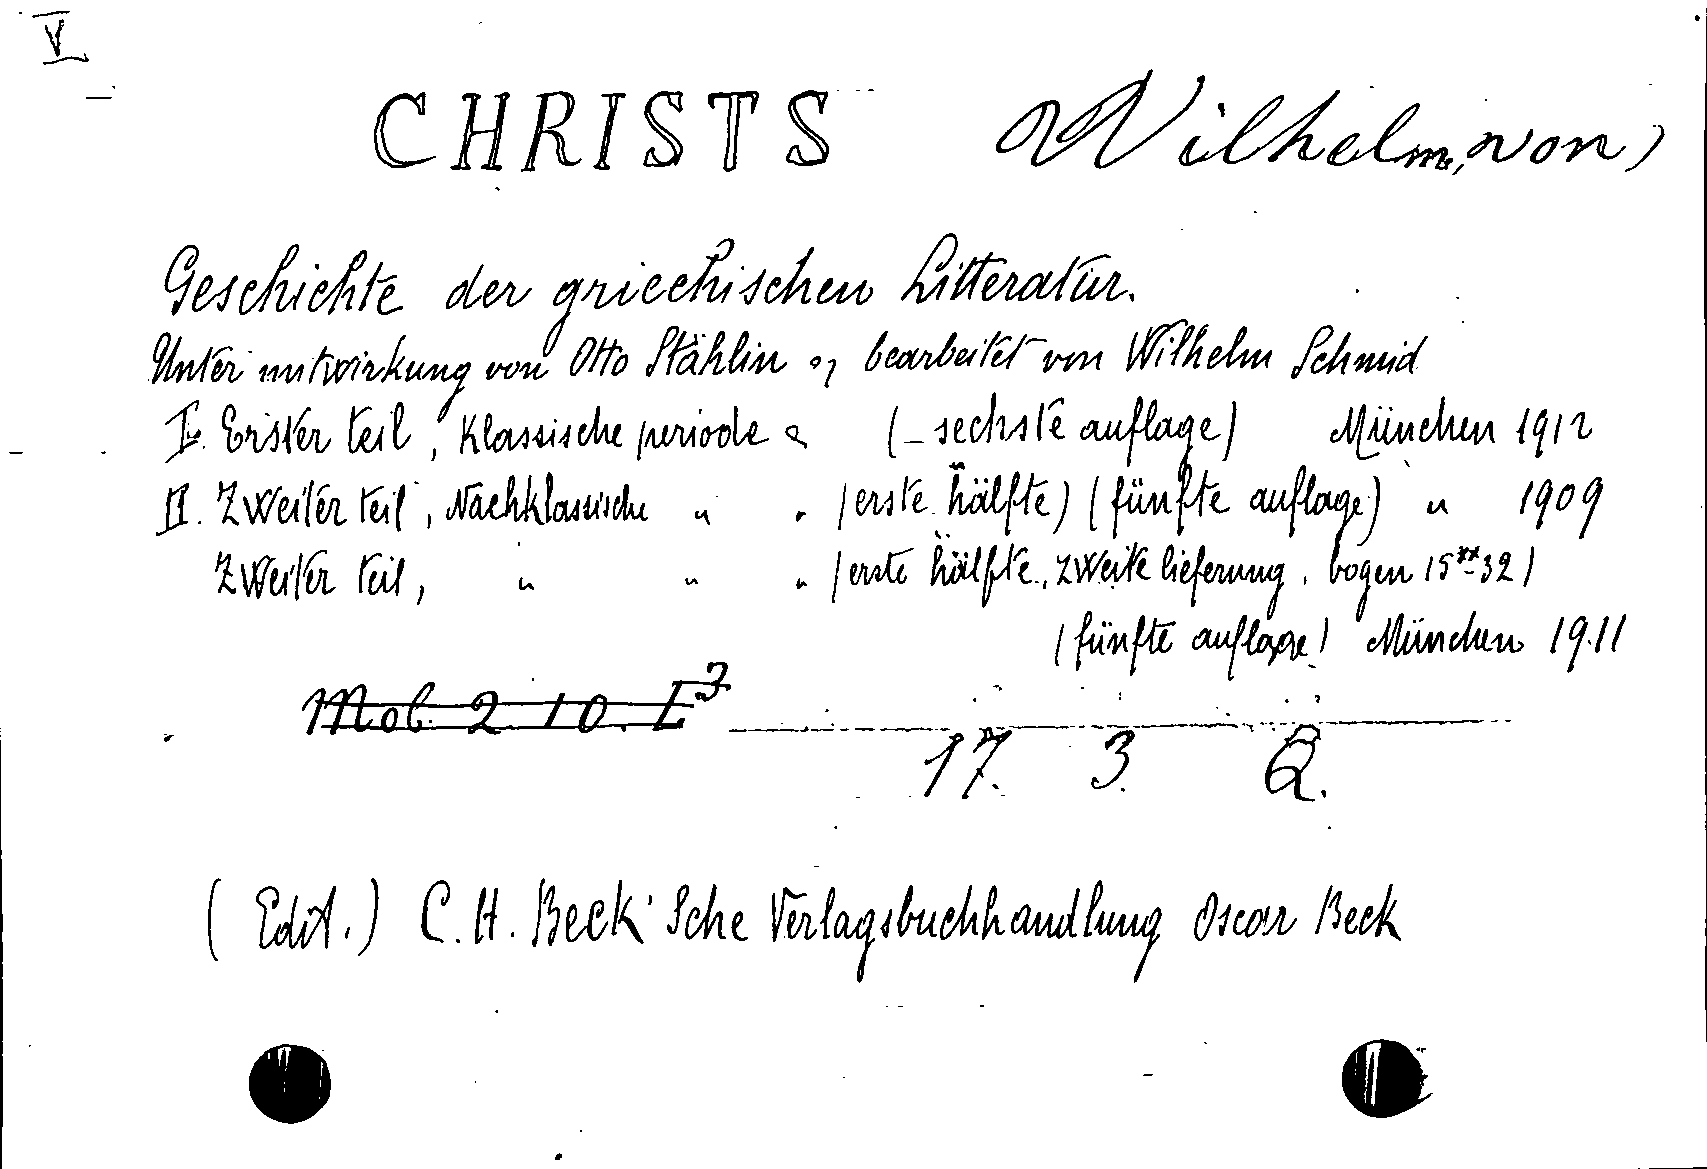 V
CHRISTS Wilhelm, von)
Geschichte der griechischen Litteratur.
Unter mitwirkung von Otto Stählin bearbeitet von Wilhelm Schmid
I. Erster teil, Klassische periode (sechste auflage) München 1912
II. Zweiter teil, Nachklassische " " (erste hälfte) (fünfte auflage) " 1909
Zweiter teil, " " " (erste hälfte, zweite lieferung, bogen 15-32)
(fünfte auflage) München 1911
Mob. 2. 10. E³
17. 3. Q.
(Edit.) C. H. Beck'Sche Verlagsbuchhandlung Oscar Beck